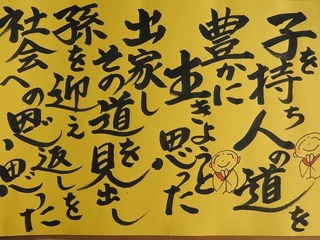 子を持ち人の道を
豊かに
生きようと思った
出家し
その道を見出し
孫を迎え
社会への恩返しを
思った